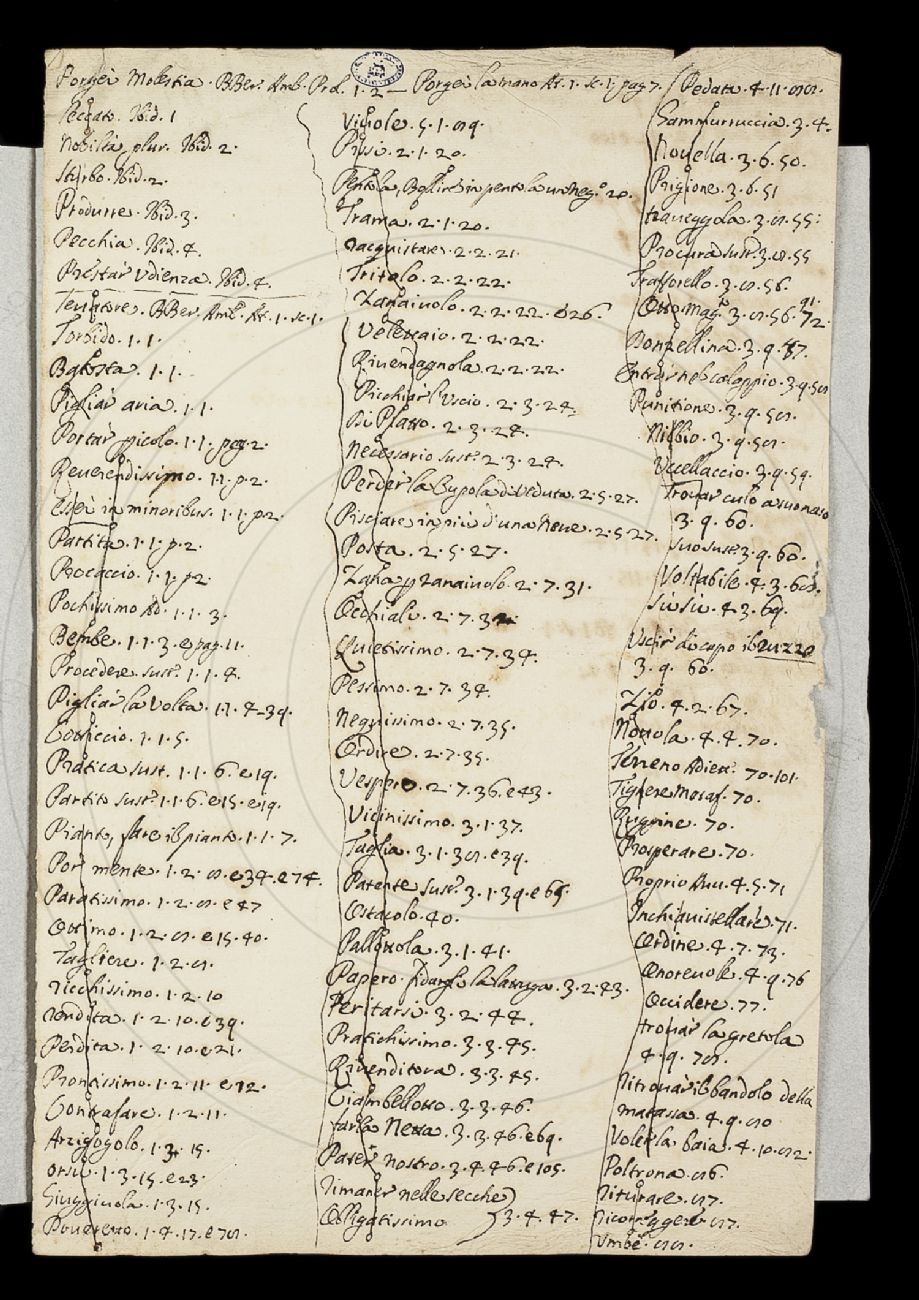 Porger Molestia. BBer. Amb. Prol. 1. 2 — Porger la mano At. 1. sc. 1. pag 7. Pedata. 4. 11.
Peccato. Ibid. 1
Nobiltà plur. Ibid. 2.
Sturbo. Ibid. 2.
Produrre. Ibid. 3.
Pecchia. Ibid. 4.
Prestar Udienza. Ibid. 4.
Tentatore. BBer. Amb. At. 1. sc. 1.
Torbido. 1. 1.
1. 1.
Pigliar aria. 1. 1.
Portar picolo. 1. 1. pag 2.
Reverendissimo. 1. 1. p. 2.
Esser in minoribus. 1. 1. p. 2.
Partita. 1. 1. p. 2.
Procaccio. 1. 1. p 2
Pochissimo Ad. 1. 1. 3.
Bembe. 1. 1. 3. e pag. 11.
Procedere sust. 1. 1. 4.
Pigliar la volta. 1. 1. 4_39.
1. 1. 5.
Pratica sust. 1. 1. 6. e 19.
Partito sust. 1. 1. 6. e 15. e 19.
Pianto, fare il pianto. 1. 1. 7.
Por mente. 1. 2. 8. e 34. e 74.
Paratissimo. 1. 2. 8. e 47
Ottimo. 1. 2. 8. e 15. 40.
Tagliere. 1. 2. 8.
ricchissimo. 1. 2. 10
rendita. 1. 2. 10. e 39.
Perdita. 1. 2. 10. e 21.
Prontissimo. 1. 2. 11. e 12.
Contrafare. 1. 2. 11.
Arzigogolo. 1. 3. 15.
Orsù. 1. 3. 15. e 23.
Giuggiuola. 1. 3. 15.
Poveretto. 1. 4. 17. e 78.
Viuole. 5. 1. 89.
2. 1. 20.
Pentola, in pentola un neg. 20.
Trama. 2. 1. 20.
racquistare. 2. 2. 21.
Tritolo. 2. 2. 22.
Zanaiuolo. 2. 2. 22. e 26.
Velettaio. 2. 2. 22.
Rivendugnola. 2. 2. 22.
Picchiar l'uscio. 2. 3. 24.
Di Piatto. 2. 3. 24.
Necessario sust. 2. 3. 24.
Perder la Cupola di veduta. 2. 5. 27.
Pisciare in più d'una neve. 2. 5. 27.
Posta. 2. 5. 27.
Zana zanaiuolo. 2. 7. 31.
Occhiali. 2. 7. 32
Quietissimo. 2. 7. 34.
Pessimo. 2. 7. 34.
Nequissimo. 2. 7. 35.
Ordire. 2. 7. 35.
Vespero. 2. 7. 36. e 43.
Vicinissimo. 3. 1. 37.
Taglia. 3. 1. 38. e 39.
Patente sust. 3. 1. 39. e 65.
Ostacolo. 40.
Pallottola. 3. 1. 41.
Papero. la lattuga. 3. 2. 43.
Peritarsi. 3. 2. 44.
Pratichissimo. 3. 3. 45.
Rivenditora. 3. 3. 45.
Ciambellotto. 3. 3. 46.
farla Netta. 3. 3. 46. e 69.
Pater nostro. 3. 4. 46. e 105.
Rimaner nelle secche
Obligatissimo 3. 4. 47.
Gammurruccia. 3. 4.
Novella. 3. 6. 50.
Prigione. 3. 6. 51
traveggola. 3. 8. 55.
Procura sust. 3. 8. 55
Trafforello. 3. 8. 56.
Otto. Mag. 3. 8. 56. 72. 91.
Donzellina. 3. 9. 57.
Entrar nel calappio. 3. 9. 58
Punitione. 3. 9. 58.
Nibbio. 3. 9. 58.
Uccellaccio. 3. 9. 59.
Trovar culo a suo naso
3. 9. 60.
Suo sust. 3. 9. 60.
Voltabile. 4. 3. 68.
Siu siu. 4. 3. 69.
Uscir di capo il ruzzo
3. 9. 60.
Zio. 4. 2. 67.
4. 4. 70.
Terreno Adiett. 70. 101.
Tignere 70.
70.
Prosperare. 70.
Proprio Avv. 4. 5. 71
Inchiavistellare 71.
Ordine. 4. 7. 73.
Onorevole. 4. 9. 76
Occidere. 77.
trovar la gretola
4. 9. 78.
Ritrovar il bandolo della
matassa. 4. 9. 80
Voler la baia. 4. 10. 82.
Poltrona. 86.
Riturare. 87.
87.
Umbè. 88.